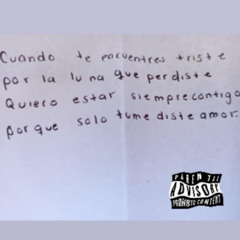 Cuando te encuentres triste
por la luna que perdiste
Quiero estar siempre contigo
porque solo tu me diste amor.
ADVISORY